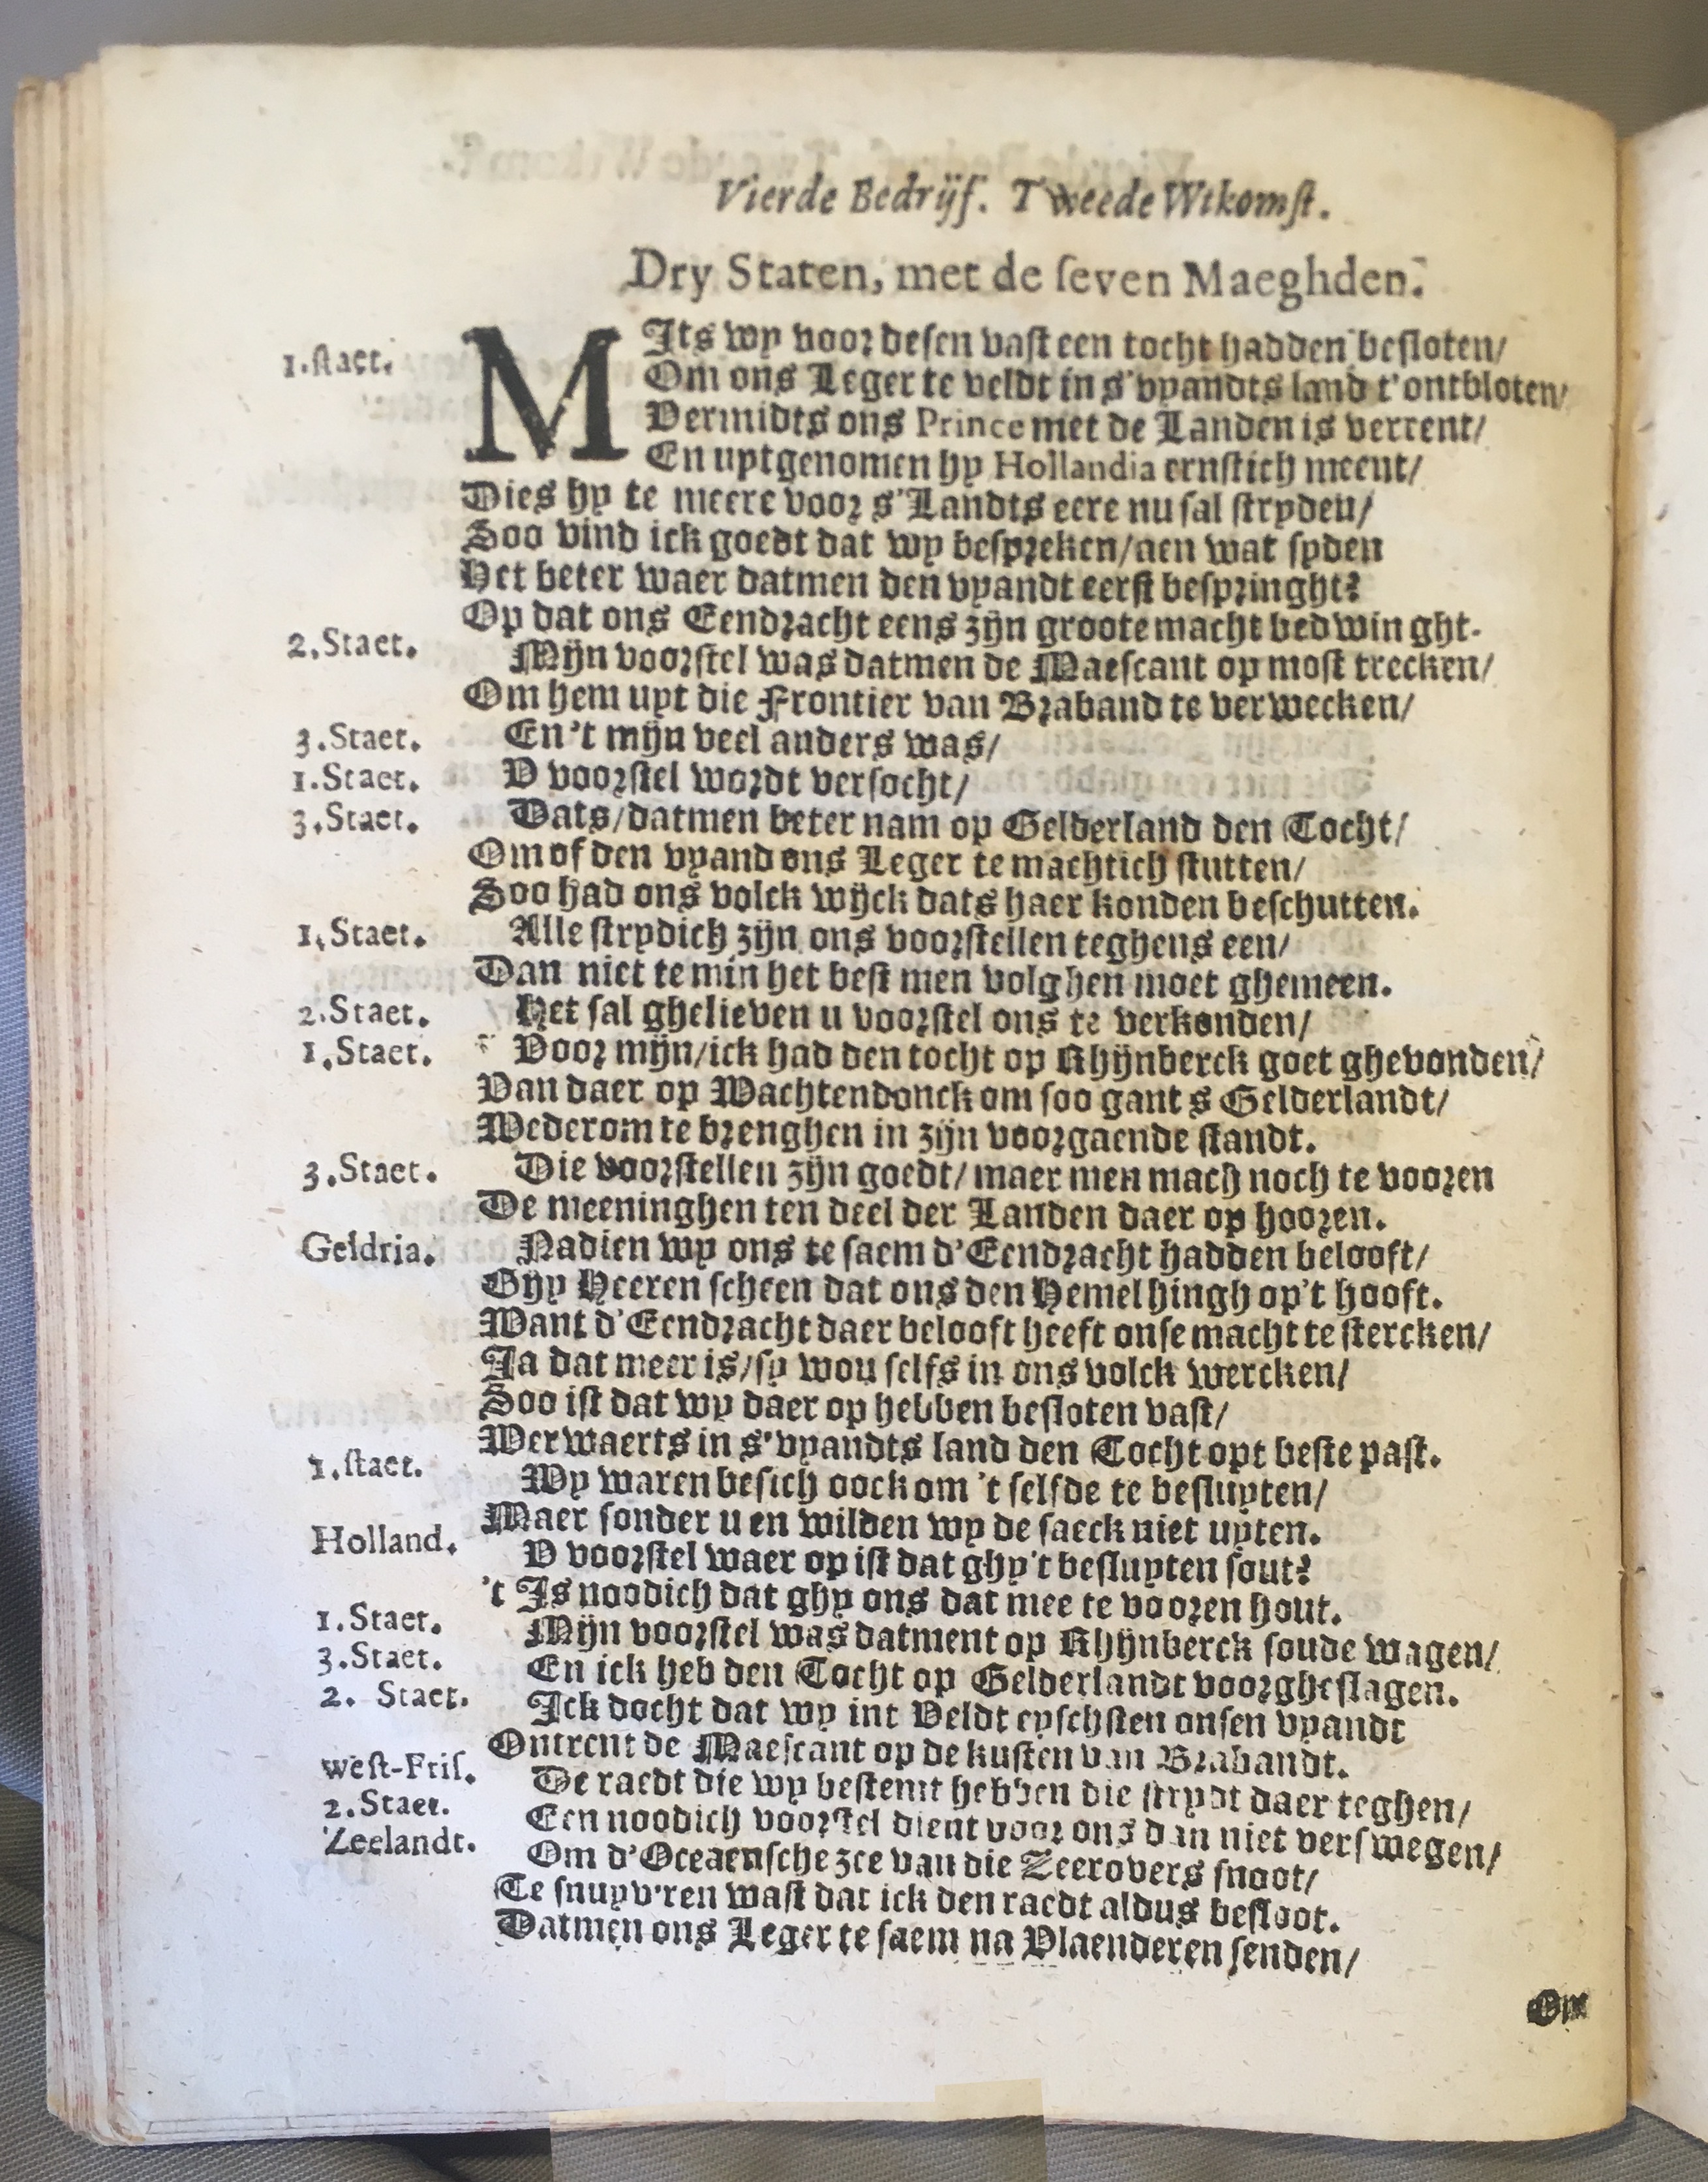 Vierde Bedrijf. Tweede Wtkomst.
Dry Staten, met de seven Maeghden.
1.staet. MIts wy voor desen vast een tocht hadden besloten/
Om ons Leger te veldt in s'vyandts land t'ontbloten/
Vermidts ons Prince met de Landen is verrent/
En uytgenomen hy Hollandia ernstich meent/
Dies hy te meere voor s'Landts eere nu sal stryden/
Soo vind ick goedt dat wy bespreken/aen wat syden
Het beter waer datmen den vyandt eerst bespringht?
Op dat ons Eendracht eens zijn groote macht bedwinght.
2.Staet. Mijn voorstel was datmen de Maescant op most trecken/
Om hem uyt die Frontier van Braband te verwecken/
3.Staet. En 't mijn veel anders was/
1.Staet. V voorstel wordt versocht/
3.Staet. Dats/datmen beter nam op Gelderland den Tocht/
Om of den vyand ons Leger te machtich stutten/
Soo had ons volck wijck dats haer konden beschutten.
1.Staet. Alle strydich zijn ons voorstellen teghens een/
Dan niet te min het best men volghen moet ghemeen.
2.Staet. Het sal ghelieven u voorstel ons te verkonden/
1.Staet. Voor mijn/ick had den tocht op Rhijnberck goet ghevonden/
Van daer op Wachtendonck om soo gants Gelderlandt/
Wederom te brenghen in zijn voorgaende standt.
3.Staet. Die voorstellen zijn goedt/ maer men mach noch te vooren
De meeninghen ten deel der Landen daer op hooren.
Geldria. Nadien wy ons te saem d'Eendracht hadden belooft/
Ghy Heeren scheen dat ons den Hemel hingh op't hooft.
Want d'Eendracht daer belooft heeft onse macht te stercken/
Ja dat meer is/sy wou selfs in ons volck wercken/
Soo ist dat wy daer op hebben besloten vast/
Werwaerts in s'vyandts land den Tocht opt beste past.
1.staet. Wy waren besich oock om 't selfde te besluyten/
Maer sonder u en wilden wy de saeck niet uyten.
Holland. V voorstel waer op ist dat ghy't besluyten sout?
't Is noodich dat ghy ons dat mee te vooren hout.
1.Staet. Mijn voorstel was datment op Rhijnberck soude wagen/
3.Staet. En ick heb den Tocht op Gelderlandt voorgheslagen.
2. Staet. Ick docht dat wy int Veldt eyschsten onsen vyandt
Ontrent de Maescant op de kusten van Brabandt.
west-Fris. De raedt die wy bestemt hebben die strydt daer teghen/
2.Staet. Een noodich voorstel dient voor ons dan niet verswegen/
Zeelandt. Om d'Oceaensche zee van die Zeerovers snoot/
Te snuyv'ren wast dat ick den raedt aldus besloot.
Datmen ons Leger te saem na Vlaenderen senden/
Om